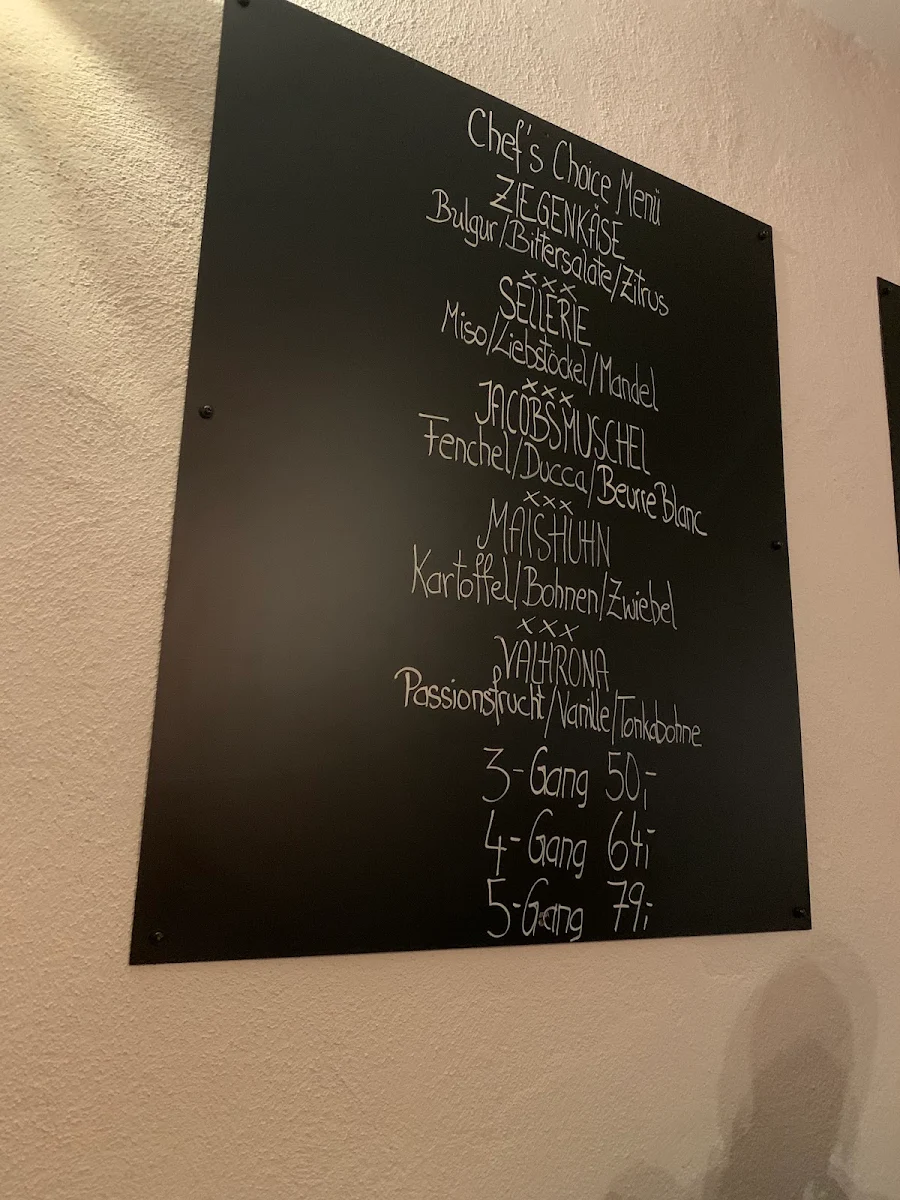 Chef's Choice Menü
ZIEGENKÄSE
Bulgur/Bittersalate/Zitrus
xxx
SELLERIE
Miso/Liebstöckel/Mandel
xxx
JACOBSMUSCHEL
Fenchel/Ducca/Beurre Blanc
xxx
MAISHUHN
Kartoffel/Bohnen/Zwiebel
xxx
VALHRONA
Passionsfrucht/Vanille/Tonkabohne
3-Gang 50,-
4-Gang 64,-
5-Gang 79,-